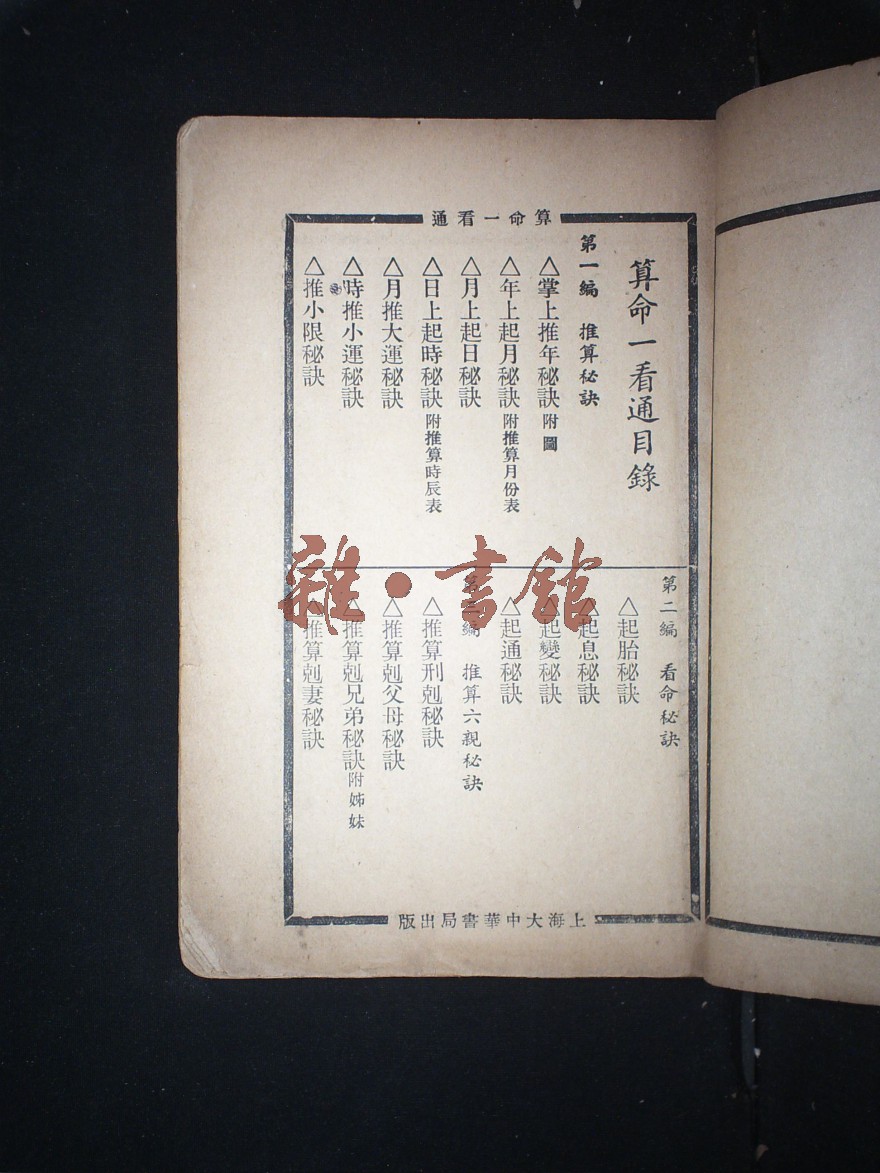 算命一看通
算命一看通目錄
第一編 推算秘訣
△掌上推年秘訣附圖
△年上起月秘訣附推算月份表
△月上起日秘訣
△日上起時秘訣附推算時辰表
△月推大運秘訣
△時推小運秘訣
△推小限秘訣
第二編 看命秘訣
△起胎秘訣
△起息秘訣
△起變秘訣
△起通秘訣
第三編 推算六親秘訣
△推算刑剋秘訣
△推算剋父母秘訣
△推算剋兄弟秘訣附姊妹
△推算剋妻秘訣
上海大中華書局出版
雜·書館